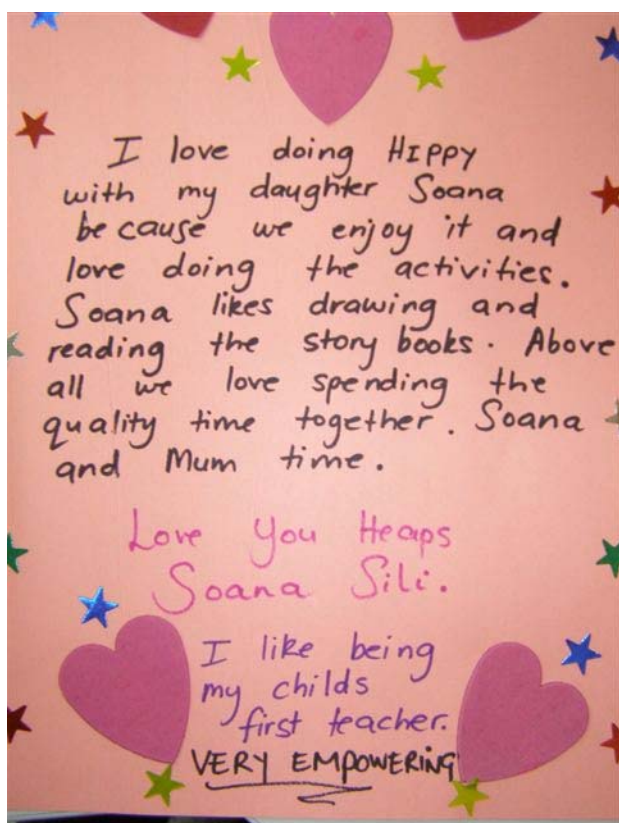 I love doing HIPPY
with my daughter Soana
because we enjoy it and
love doing the activities.
Soana likes drawing and
reading the story books. Above
all we love spending the
quality time together. Soana
and Mum time.
Love You Heaps
Soana Sili.
I like being
my childs
first teacher.
VERY EMPOWERING